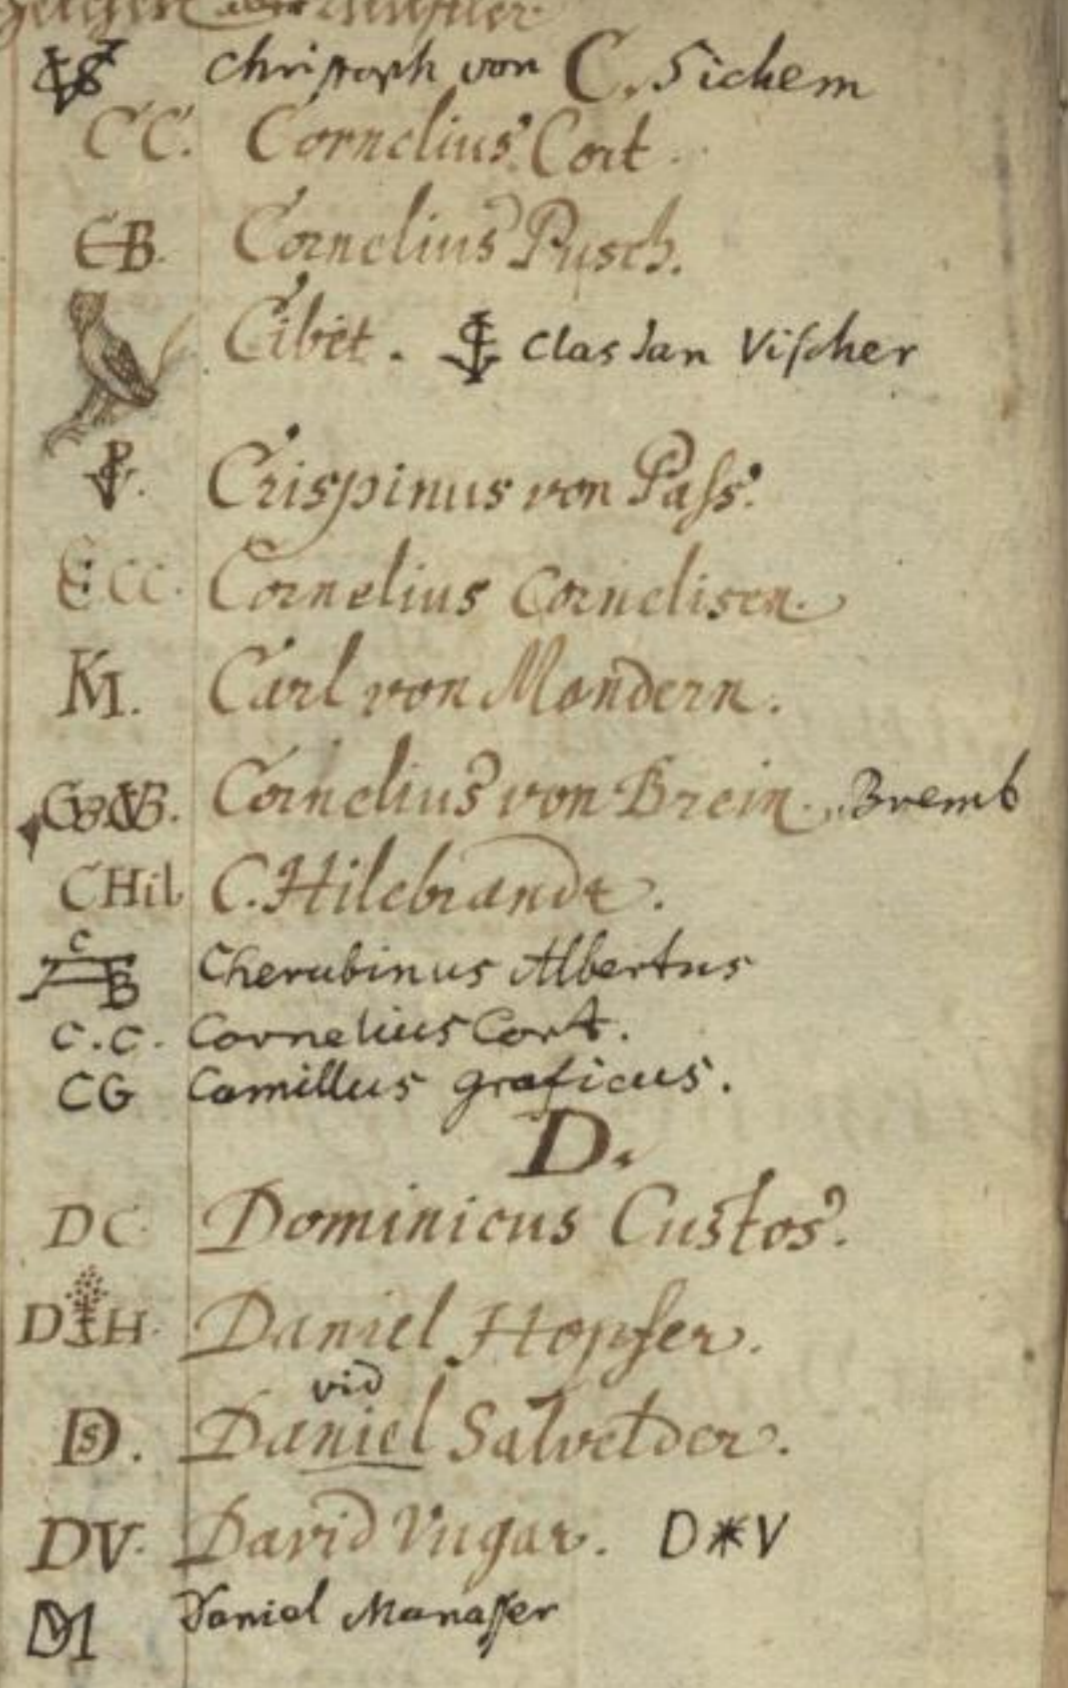 Christoph von C. Sichem
CC. Cornelius Cort.
CB. Cornelius Pusch.
Cibet. Clas Jan Viſcher
Crispinus von Paſs.
CCC. Cornelius Cornelisen.
KM. Carl von Mandern.
Cornelius von Brein. Bremb
CHil C. Hilebrandt.
CB Cherubinus Albertus
C.C. Cornelius Cort.
CG Camillus graficus.
D.
DC Dominicus Custos.
D H. Daniel Hopfer.
vid
DS. Daniel Salvetder.
DV. David Vugar. D*V
DM Daniel Manaſſer